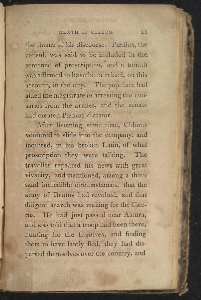 DEATH OF CICERO. 25
the theme of his discourse. Perdius, the
consul, was said to be included in the
sentence of proscription, and a tumult
was affirmed to have been raised, on this
account, in the city. The populace had
aided the magistrate in arresting the emis-
saries from the armies, and the senate
had created Perdius dictator.
After listening some time, Chlorus
ventured to slide into the company, and
inquired, in his broken Latin, of what
proscription they were talking. The
traveller repeated his news with great
vivacity, and mentioned, among a thou-
sand incredible circumstances, that the
army of Brutus had revolted, and that
diligent search was making for the Cice-
ros. He had just passed near Astura,
and was told that a troop had been there,
hunting for the fugitives, and finding
them to have lately fled, they had dis-
persed themselves over the country, and